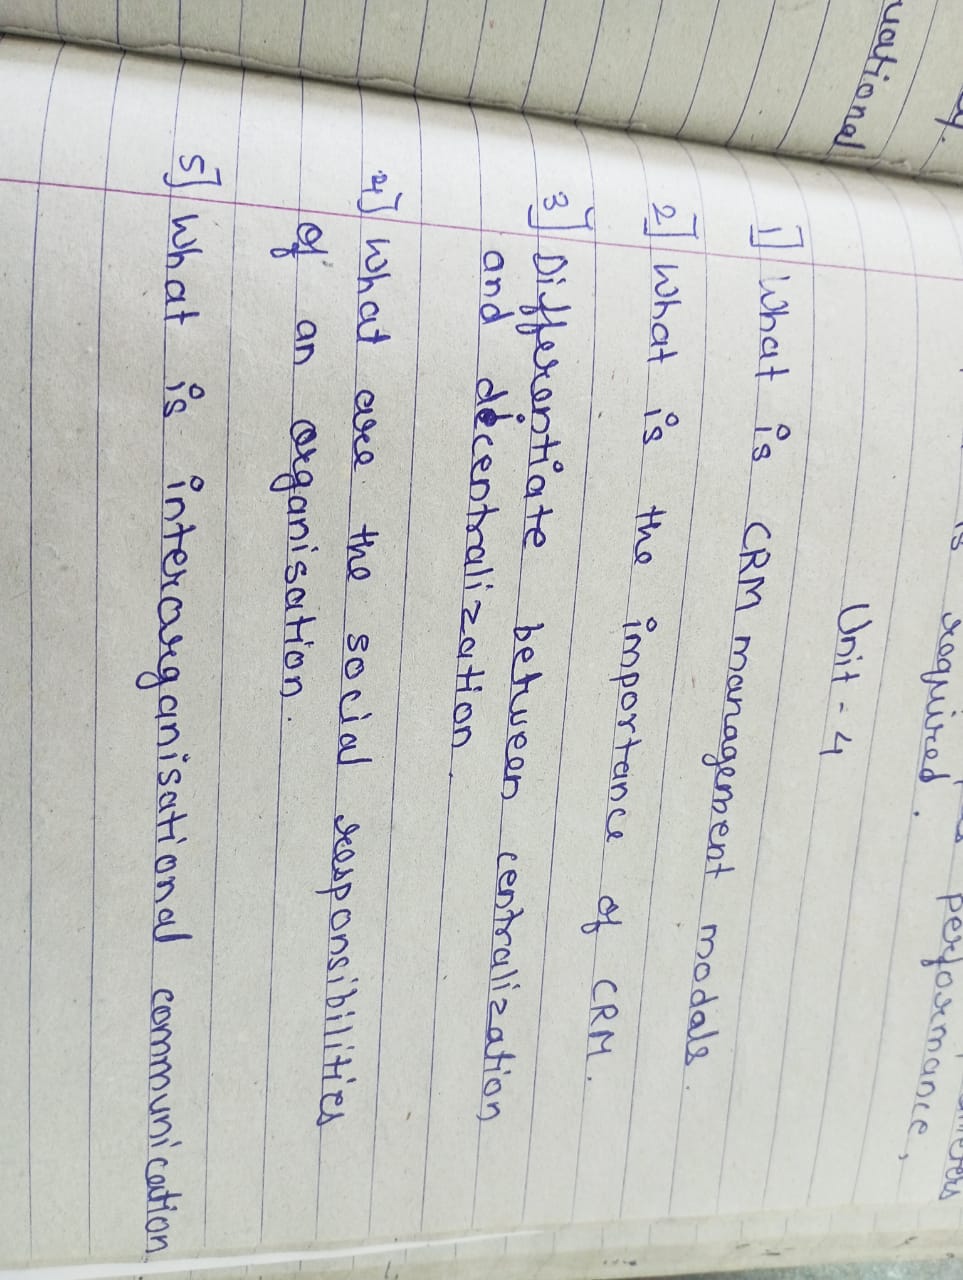 uational
required. performance,
Unit - 4
1] What is CRM management modals.
2] What is the importance of CRM.
3] Differentiate between centralization
and decentralization.
4] What are the social responsibilities
of an organisation.
5] What is interorganisational communication.